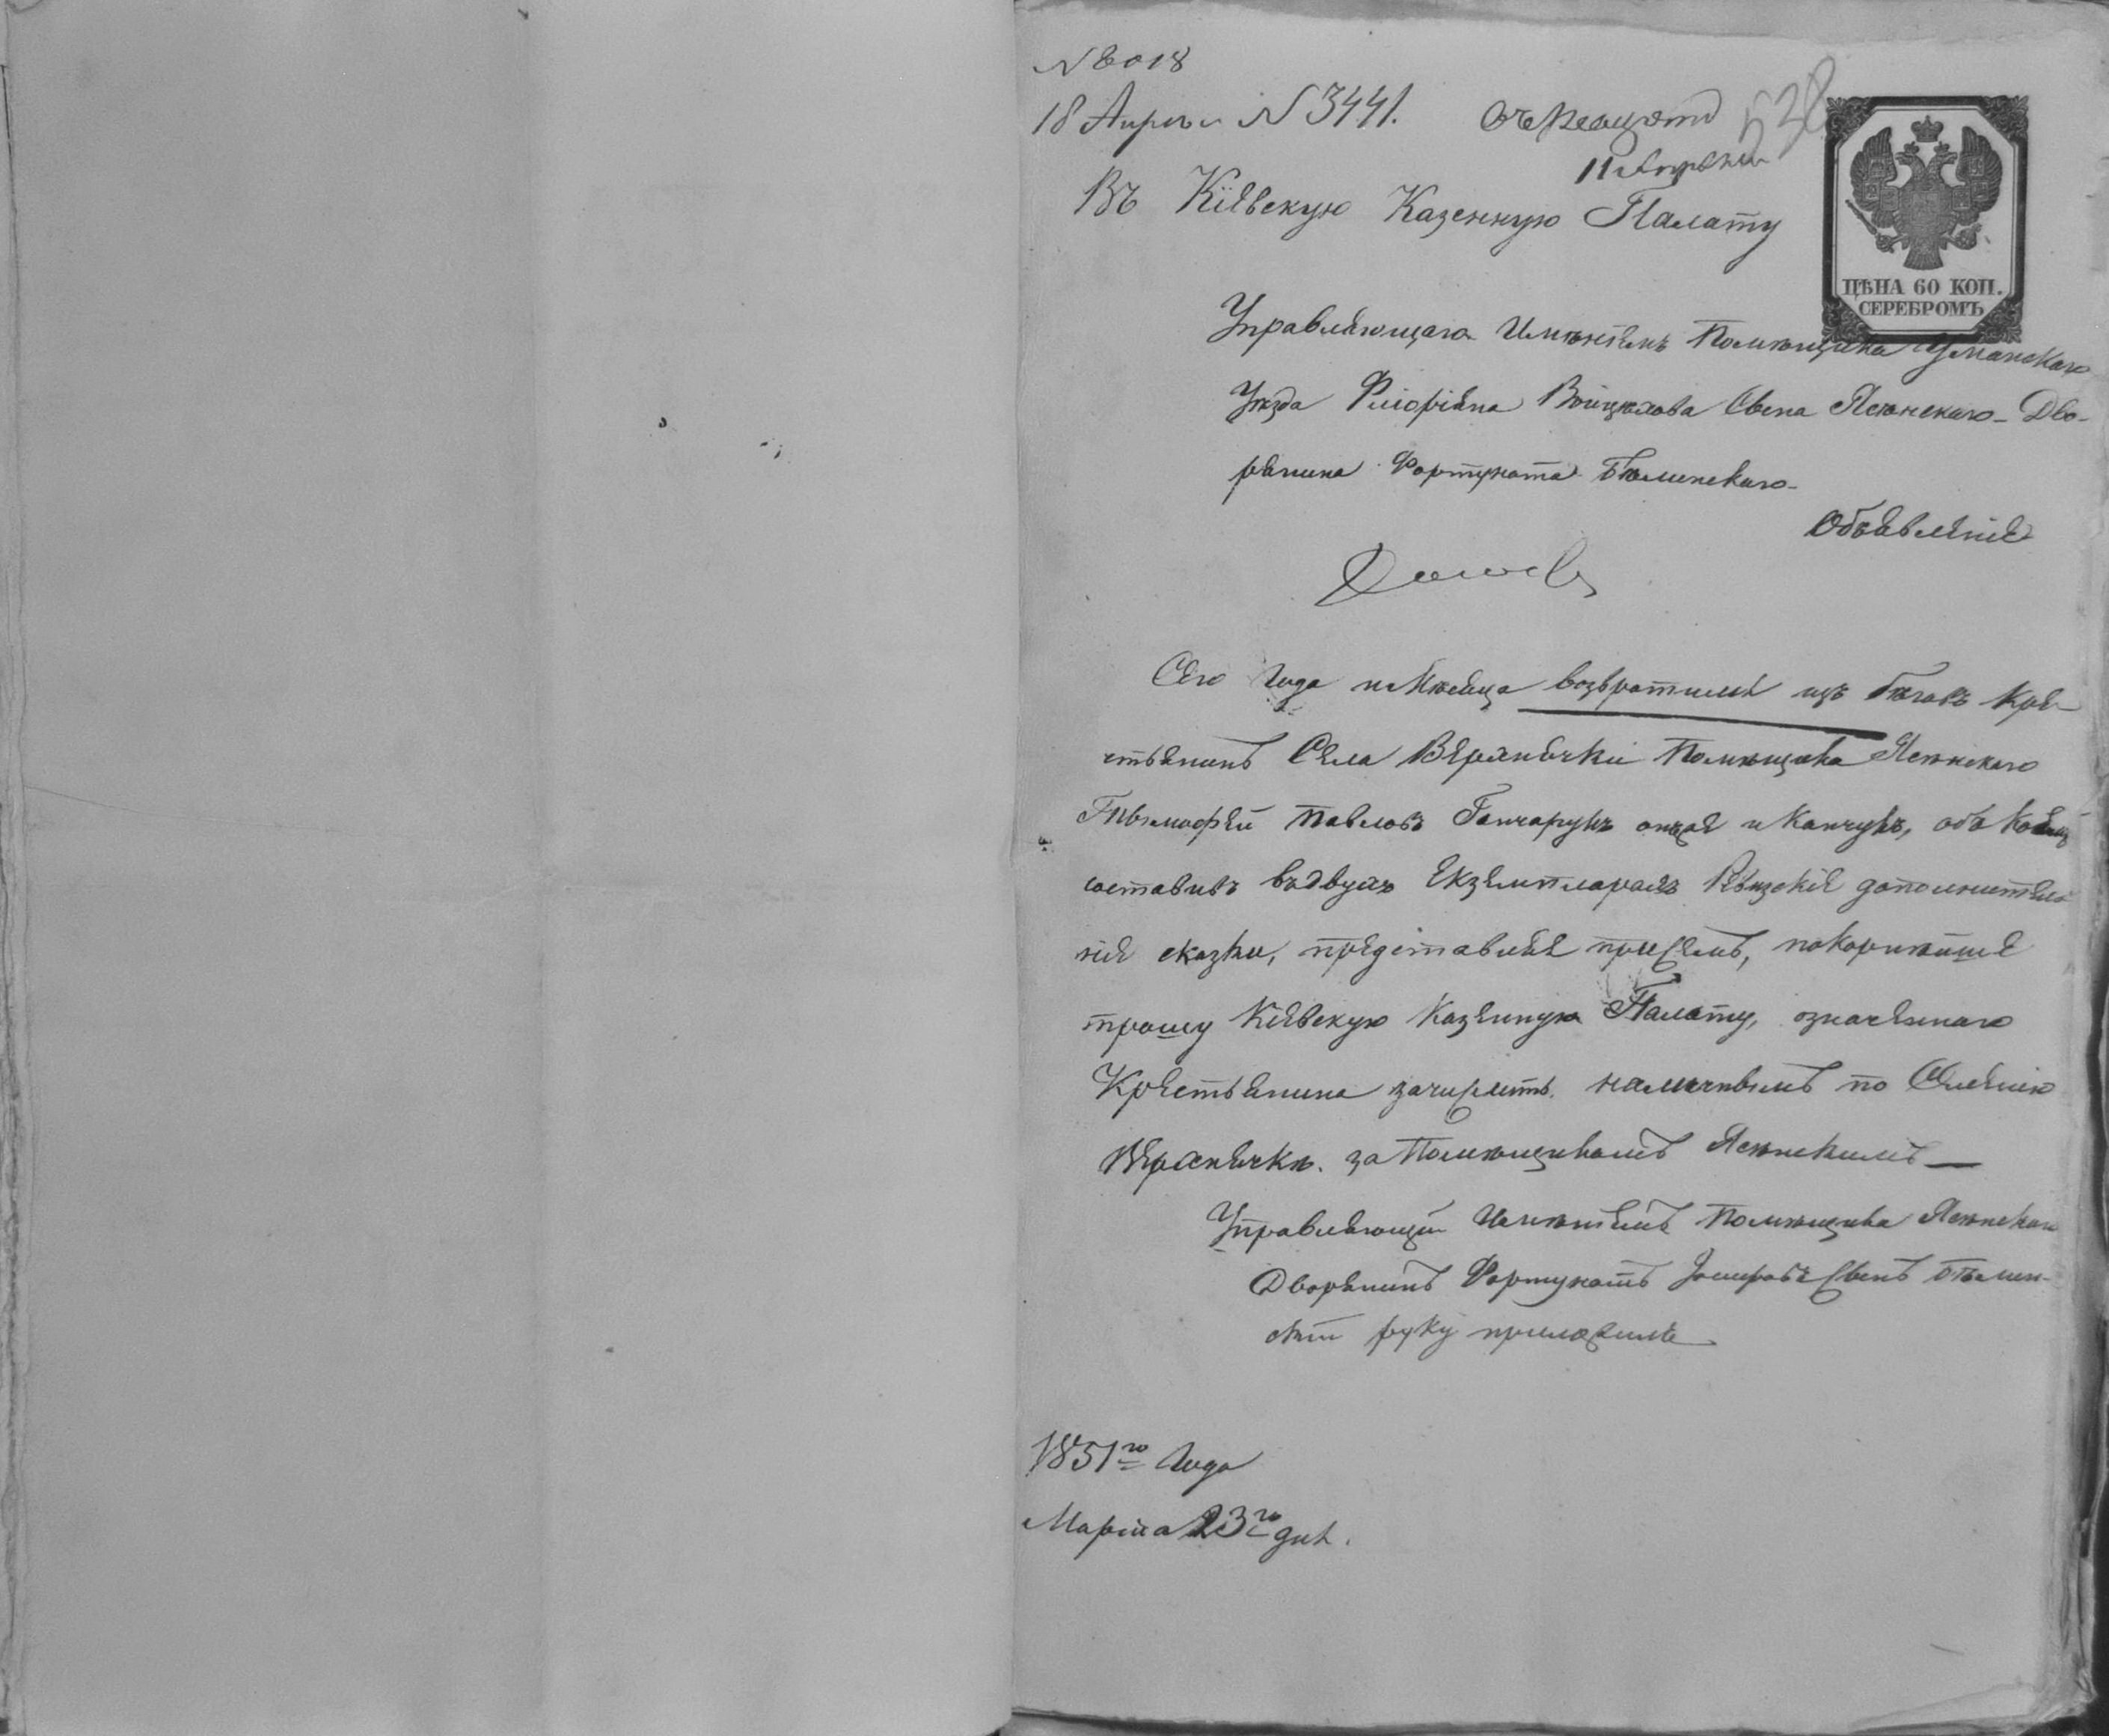 N 8018
18 Апреля N 3441.
538
11 Апреля
Въ Кіевскую Казенную Палату
ЦѢНА 60 КОП.
СЕРЕБРОМЪ
Управляющаго Имѣніемъ Помѣщика Уманскаго
Уѣзда Флоріяна Войцѣхова Сына Ясѣнскаго Дво-
рянина Фортуната
Объявленіе
Сего Года и Мѣсяца возвратился изъ бѣговъ Кре-
стьянинъ Села Вербякѣ Помѣщика Ясѣнскаго
Тымофей Павловъ Гончарукъ онъже и Канчукъ, объ коемъ
составивъ въ двухъ Екземплярахъ Ревизскіе дополнитель
ніе сказки, представляя присемъ, покорнѣйше
прошу Кіевскую Казенную Палату, означеннаго
Крестьянина зачислить наличнымъ по Селенію
за Помѣщикомъ Ясѣнскимъ —
Управляющій Имѣніемъ Помѣщика Ясѣнскаго
Дворянинъ Фортунатъ Сынъ
скій руку приложилъ
1851го Года
Марта 23го дня.